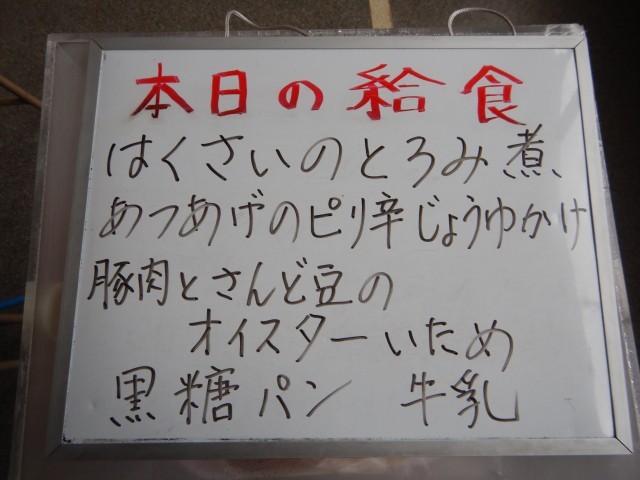 本日の給食
はくさいのとろみ煮
あつあげのピリ辛じょうゆかけ
豚肉とさんど豆の
オイスターいため
黒糖パン 牛乳